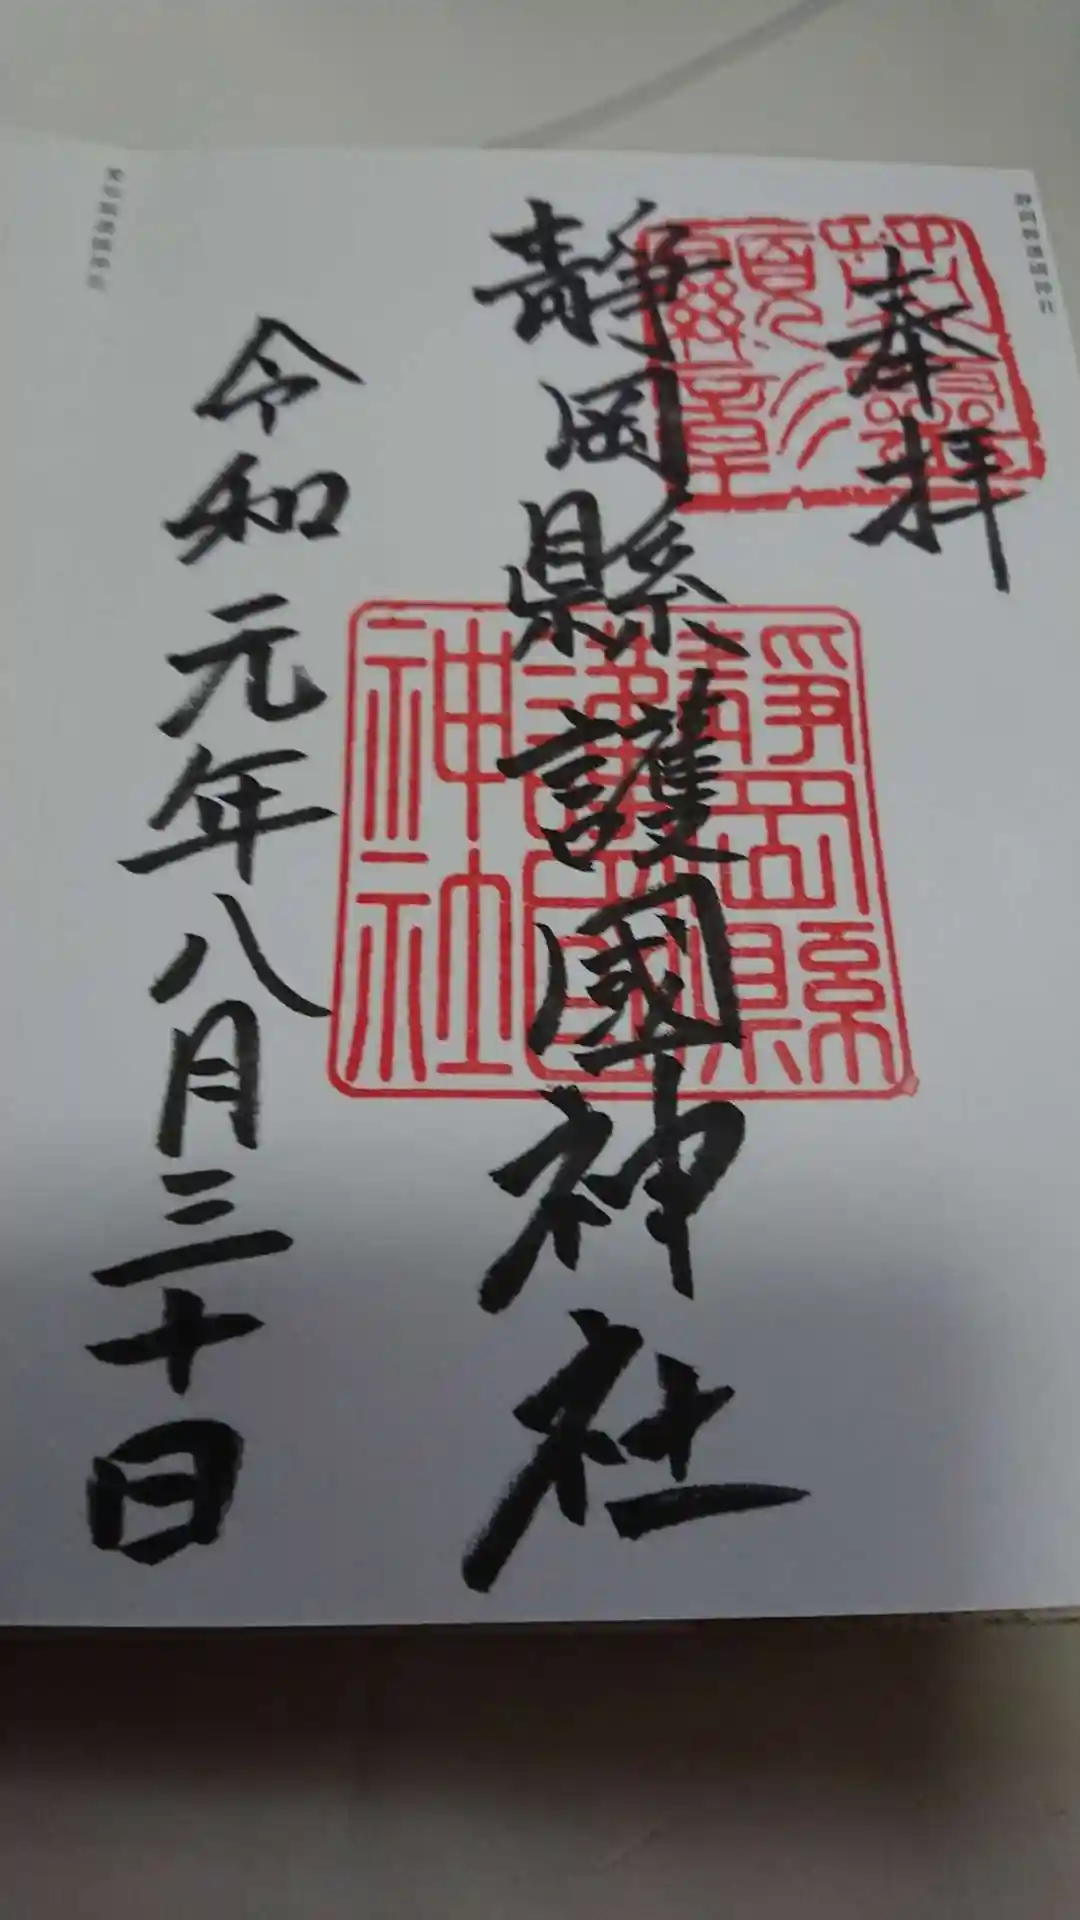 奉拝
靜岡縣護國神社
令和元年八月三十日
靜岡縣護國神社